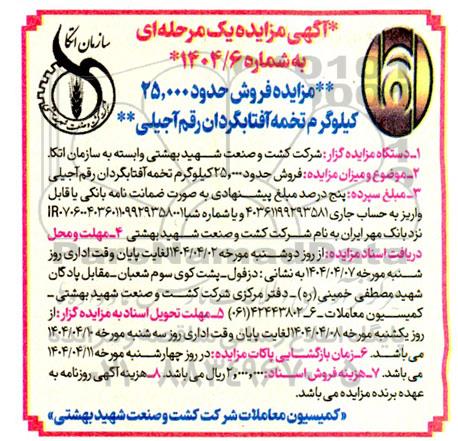 سازمان اتکا
*آگهی مزایده یک مرحله‌ای
به شماره ۱۴۰۴/۶*
**مزایده فروش حدود ۲۵,۰۰۰
کیلوگرم تخمه آفتابگردان رقم آجیلی**
۱ـ دستگاه مزایده گزار: شرکت کشت و صنعت شهید بهشتی وابسته به سازمان اتکا.
۲ـ موضوع و میزان مزایده: فروش حدود ۲۵,۰۰۰ کیلوگرم تخمه آفتابگردان رقم آجیلی
۳ـ مبلغ سپرده: پنج درصد مبلغ پیشنهادی به صورت ضمانت نامه بانکی یا قابل
واریز به حساب جاری ۴۰۳۶۱۱۹۹۲۹۳۵۸۱ و یا شماره شبا
نزد بانک مهر ایران به نام شرکت کشت و صنعت شهید بهشتی ۴ـ مهلت و محل
دریافت اسناد مزایده: از روز دوشنبه مورخه ۱۴۰۴/۰۴/۰۲ لغایت پایان وقت اداری روز
شنبه مورخه ۱۴۰۴/۰۴/۰۷ به نشانی: دزفول ـ پشت کوی سوم شعبان ـ مقابل پادگان
شهید مصطفی خمینی (ره) ـ دفتر مرکزی شرکت کشت و صنعت شهید بهشتی ـ
کمیسیون معاملات ـ ۶ـ۴۲۴۴۳۸۰۲ (۰۶۱) ۵ـ مهلت تحویل اسناد به مزایده گزار: از
روز یکشنبه مورخه ۱۴۰۴/۰۴/۰۸ لغایت پایان وقت اداری روز سه شنبه مورخه ۱۴۰۴/۰۴/۱۰
می باشد. ۶ـ زمان بازگشایی پاکات مزایده: در روز چهارشنبه مورخه ۱۴۰۴/۰۴/۱۱
می باشد. ۷ـ هزینه فروش اسناد: ۲,۰۰۰,۰۰۰ ریال می باشد. ۸ـ هزینه آگهی روزنامه به
عهده برنده مزایده می باشد.
«کمیسیون معاملات شرکت کشت و صنعت شهید بهشتی»